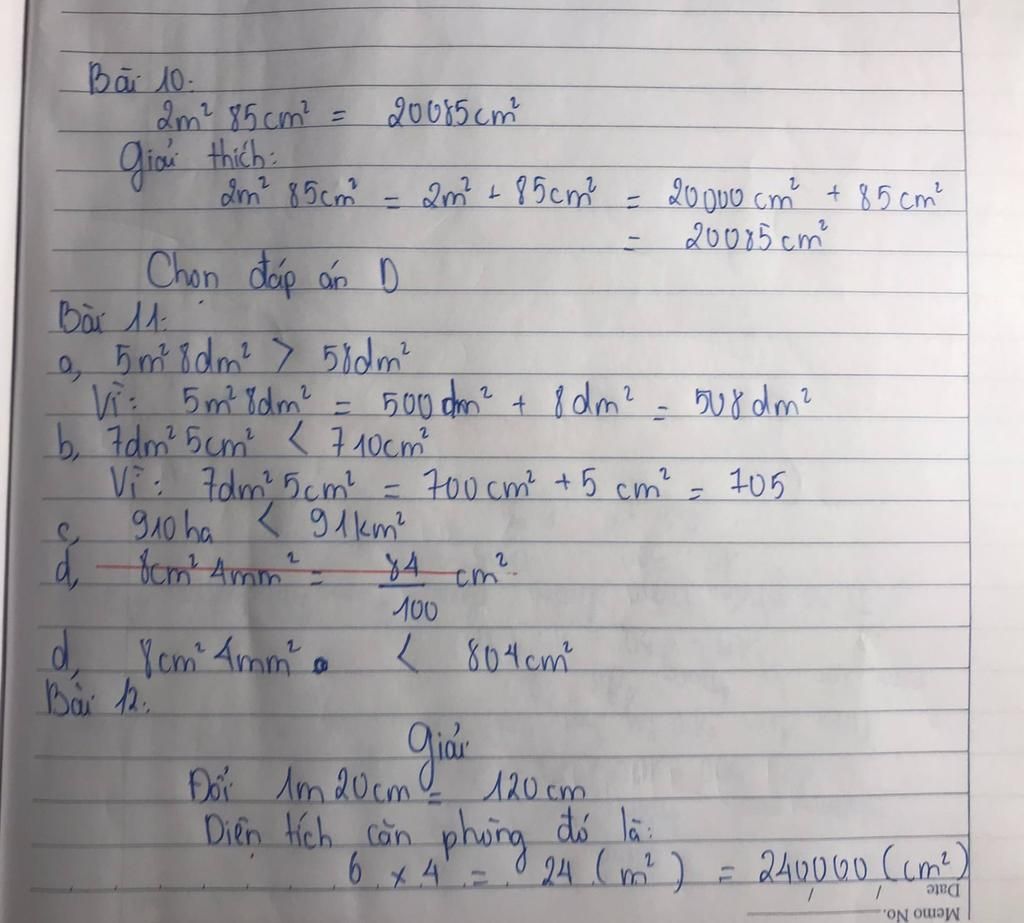 Bài 10:
2m² 85cm² = 20085cm²
Giải thích:
2m² 85cm² = 2m² + 85cm² = 20000cm² + 85cm²
= 20085cm²
Chọn đáp án D
Bài 11:
a, 5m² 8dm² > 58dm²
Vì: 5m² 8dm² = 500dm² + 8dm² = 508dm²
b, 7dm² 5cm² < 710cm²
Vì: 7dm² 5cm² = 700cm² + 5 cm² = 705
c, 910ha < 91km²
d, 8cm² 4mm² = 84/100 cm²
d, 8cm² 4mm² < 804cm²
Bài 12:
Giải
Đổi 1m 20cm = 120cm
Diện tích căn phòng đó là:
6 x 4 = 24 (m²) = 240000 (cm²)
Date
Memo No.